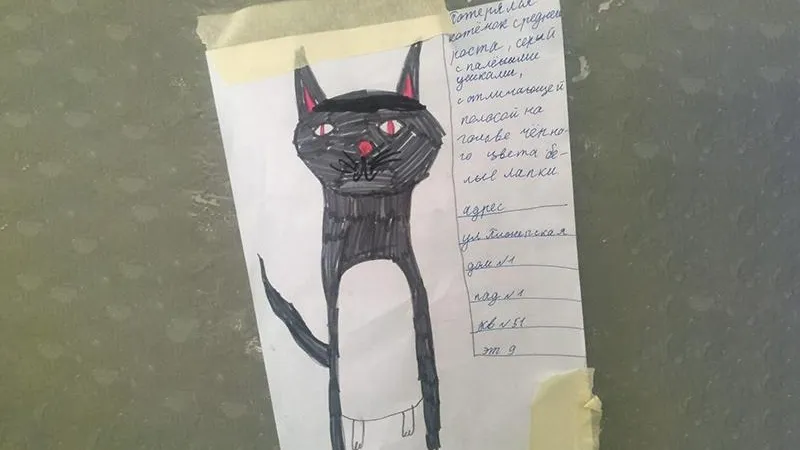 Потерялся
котёнок средней
роста, серый
с палёными
ушками,
с отличающей
полосой на
голове чёрно-
го цвета бе-
лые лапки.
адрес
ул Пионерская
дом №1
пад №1
кв №51
эт 9